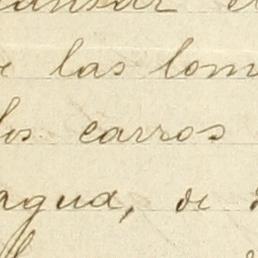 e las lom
los carros
agua, de